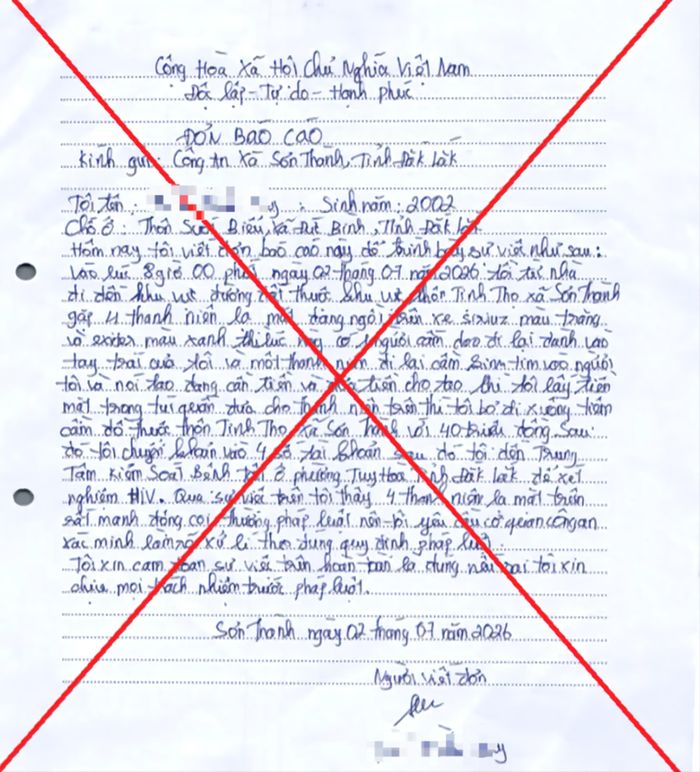 Cộng Hòa Xã Hội Chủ Nghĩa Việt Nam
Độc lập - Tự do - Hạnh phúc
ĐƠN BÁO CÁO
Kính gửi: Công An Xã Sơn Thành, Tỉnh Đăk Lăk
Tôi tên: y Sinh năm: 2002
Chỗ ở: Thôn Suối Biểu, xã Đức Bình, Tỉnh Đăk Lăk
Hôm nay tôi viết đơn báo cáo này để trình bày sự việc như sau:
vào lúc 8 giờ 00 phút, ngày 02 tháng 07 năm 2026 tôi từ nhà
đi đến khu vực đường thuộc khu vực thôn Tịnh Thọ xã Sơn Thành
gặp 4 thanh niên lạ mặt đang ngồi trên xe siriuz màu trắng
và exider màu xanh thì lúc này có 1 người cầm dao đi lại đánh vào
tay trái của tôi và một thanh niên đi lại cầm kim tim vào người
tôi và nói tao đang cần tiền và đưa tiền cho tao thì tôi lấy tiền
mặt trong túi quần đưa cho thanh niên trên thì tôi bỏ đi xuống tiệm
cầm đồ thuộc thôn Tịnh Thọ xã Sơn Thành với 40 triệu đồng. Sau
đó tôi chuyển khoản vào 4 số tài khoản sau đó tôi đến Trung
Tâm Kiểm Soát Bệnh tật ở phường Tuy Hòa Tỉnh Đăk Lăk để xét
nghiệm HIV. Qua sự việc trên tôi thấy 4 thanh niên lạ mặt trên
rất manh động coi thường pháp luật nên tôi yêu cầu cơ quan công an
xác minh làm rõ xử lí theo đúng quy định pháp luật.
Tôi xin cam đoan sự việc trên hoàn toàn là đúng nếu sai tôi xin
chịu mọi trách nhiệm trước pháp luật.
Sơn Thành ngày 02 tháng 07 năm 2026
Người viết đơn
y